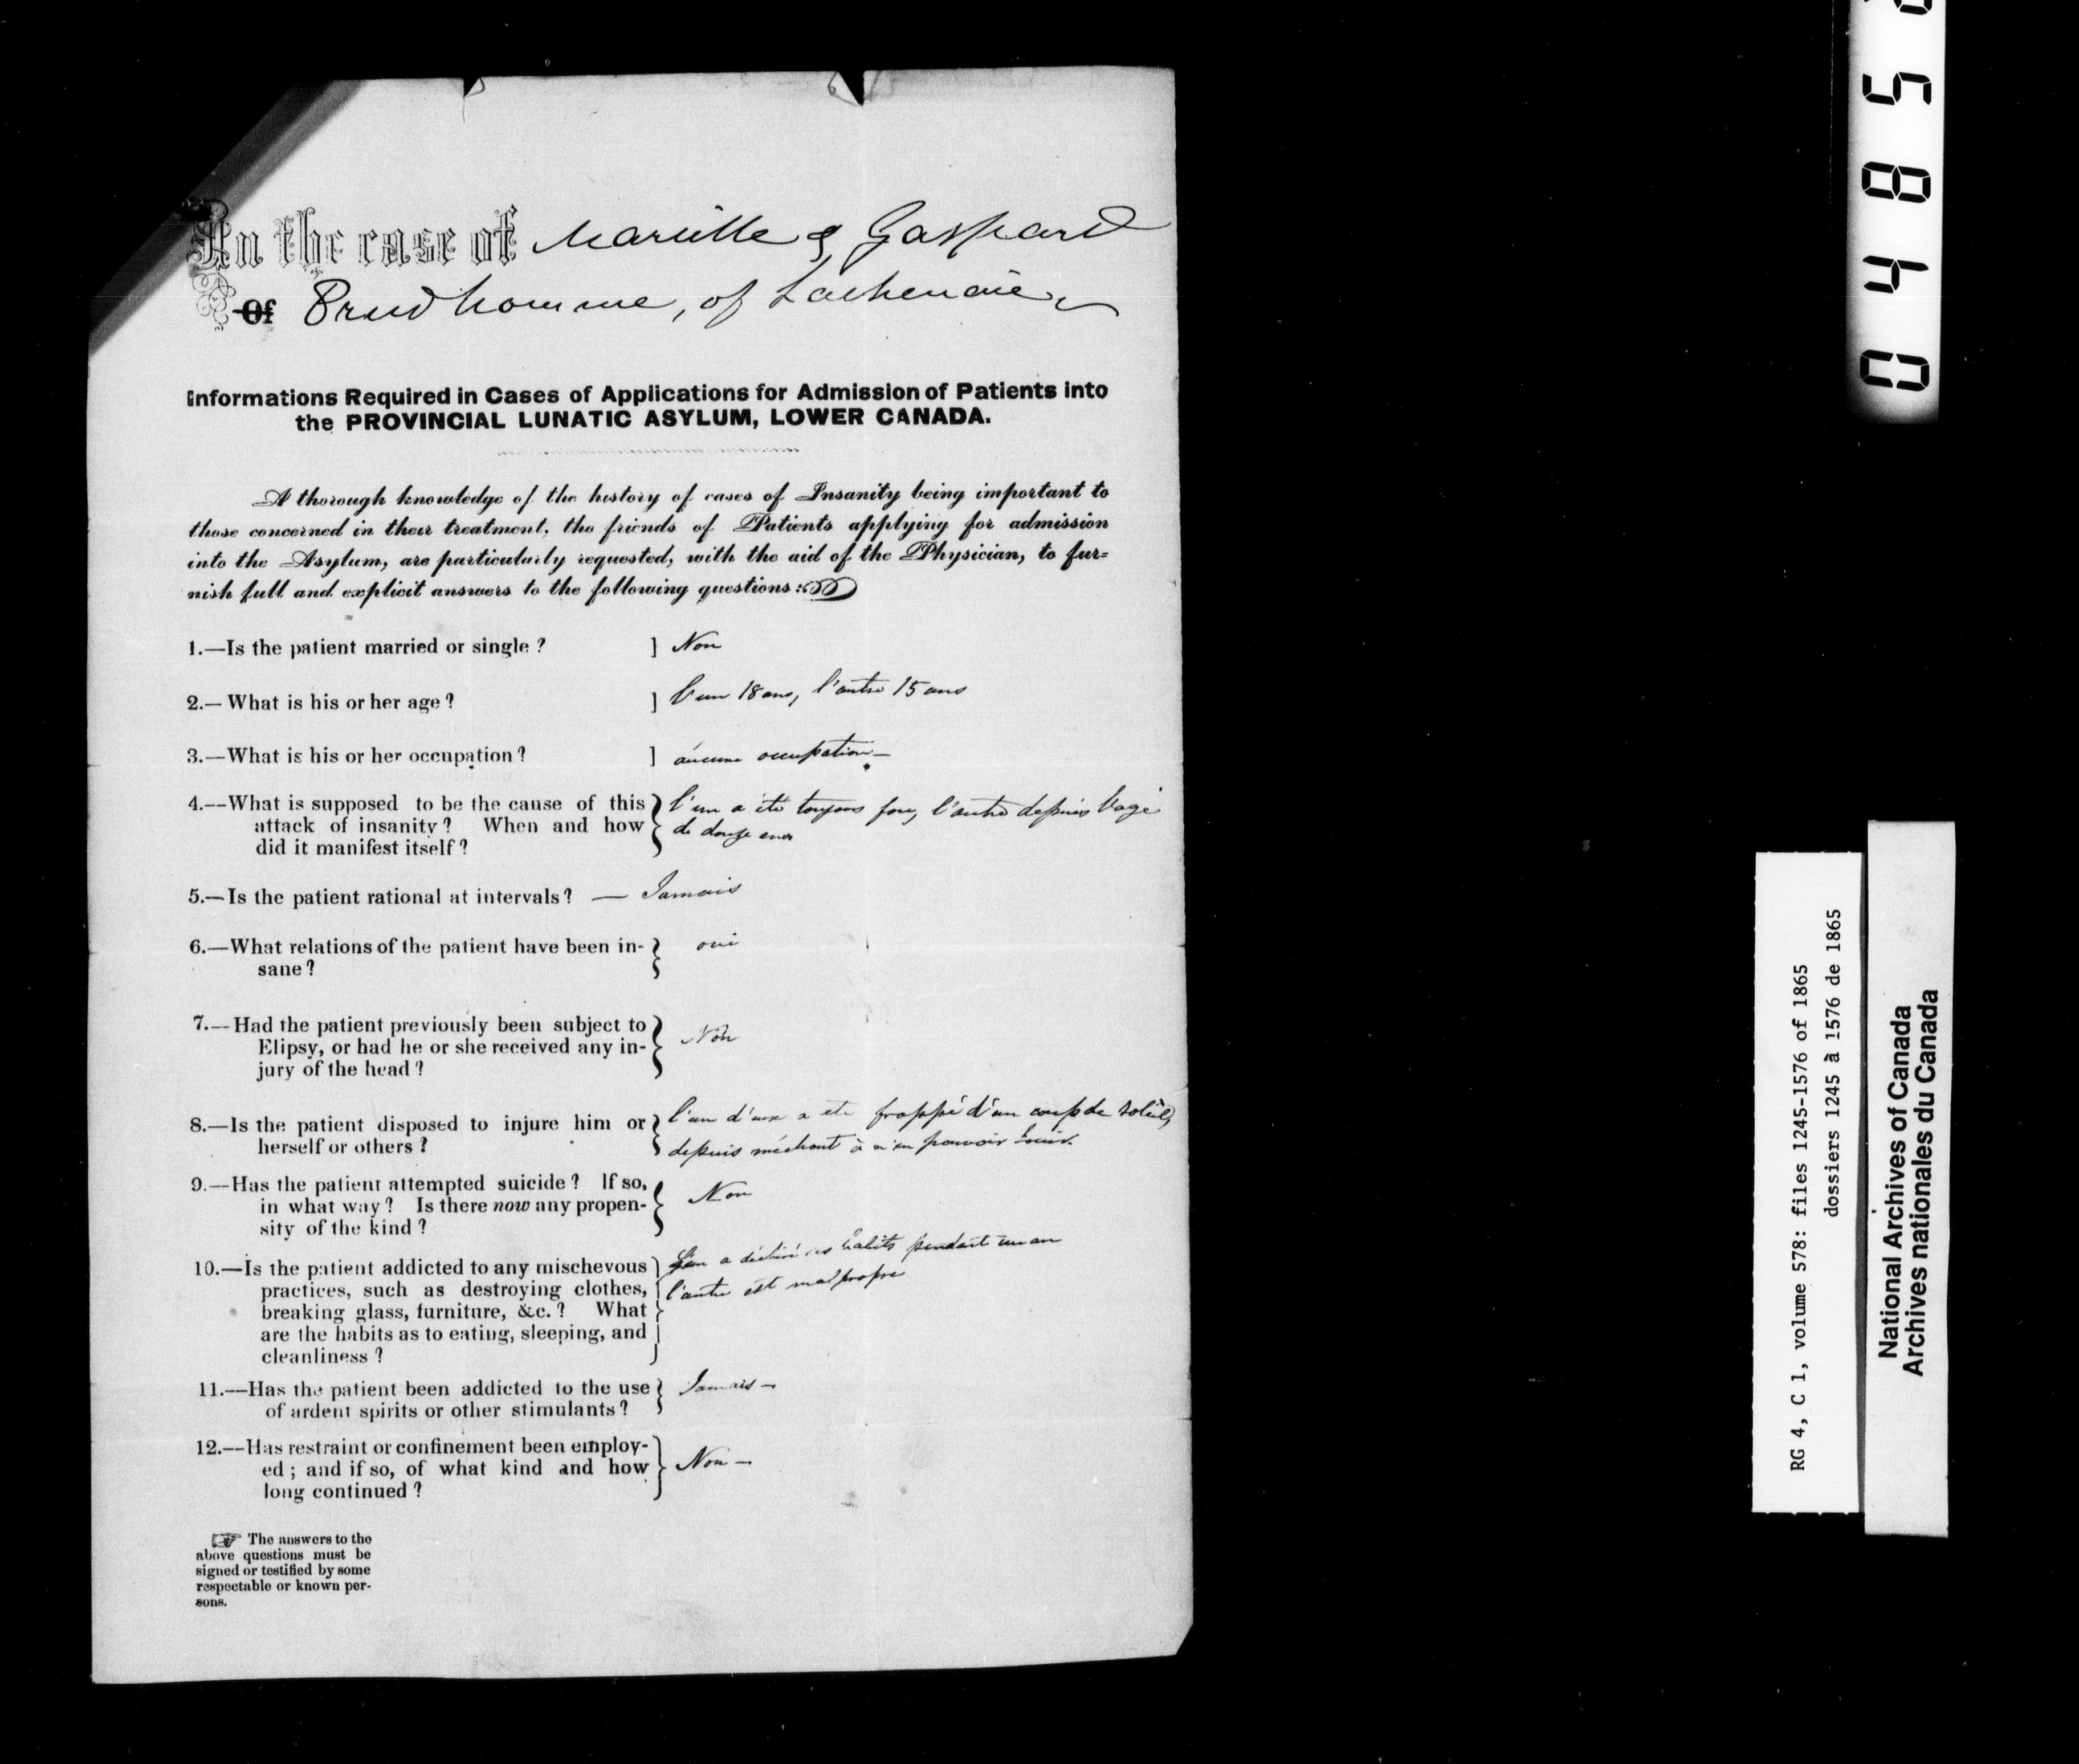 In the case of Marcille & Gaspard
Of Prudhomme, of Lachenaie,
Informations Required in Cases of Applications for Admission of Patients into
the PROVINCIAL LUNATIC ASYLUM, LOWER CANADA.
A thorough knowledge of the history of cases of Insanity being important to
those concerned in their treatment, the friends of Patients applying for admission
into the Asylum, are particularly requested, with the aid of the Physician, to fur=
nish full and explicit answers to the following questions:
1.—Is the patient married or single ? ] Non
2.—What is his or her age ? ] l'un 18 ans, l'autre 15 ans
3.—What is his or her occupation ? ] aucune occupation—
4.—What is supposed to be the cause of this } l'un a été toujours fou, l'autre depuis l'age
attack of insanity ? When and how de douze ans
did it manifest itself ?
5.—Is the patient rational at intervals ? — Jamais
6.—What relations of the patient have been in- } oui
sane ?
7.—Had the patient previously been subject to
Elipsy, or had he or she received any in- } Non
jury of the head ?
8.—Is the patient disposed to injure him or } l'un d'eux a été frappé d'un coup de soleil,
herself or others ? depuis méchant à n'en pouvoir
9.—Has the patient attempted suicide ? If so,
in what way ? Is there now any propen- } Non
sity of the kind ?
10.—Is the patient addicted to any mischevous } L'un a déchiré ses habits pendant un an
practices, such as destroying clothes, l'autre est malpropre
breaking glass, furniture, &c. ? What
are the habits as to eating, sleeping, and
cleanliness ?
11.—Has the patient been addicted to the use } Jamais—
of ardent spirits or other stimulants ?
12.—Has restraint or confinement been employ-
ed ; and if so, of what kind and how } Non—
long continued ?
☞ The answers to the
above questions must be
signed or testified by some
respectable or known per-
sons.
RG 4, C 1, volume 578: files 1245-1576 of 1865
dossiers 1245 à 1576 de 1865
National Archives of Canada
Archives nationales du Canada
0485